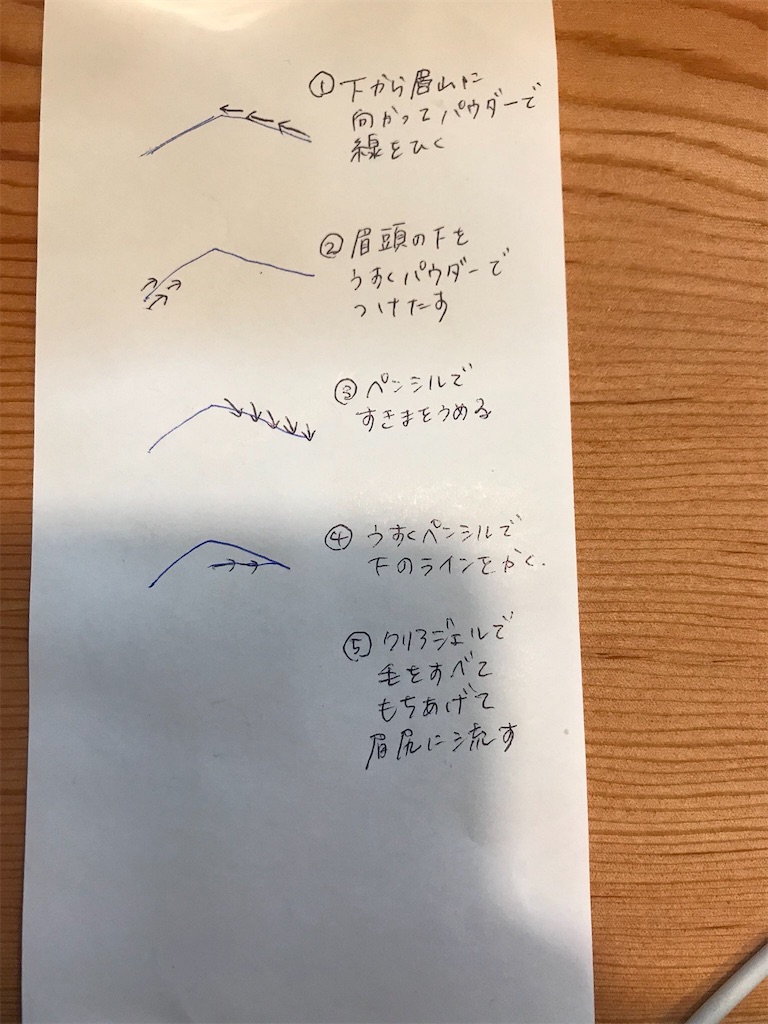 ①下から眉山に
向かってパウダーで
線をひく
②眉頭の下を
うすくパウダーで
つけたす
③ペンシルで
すきまをうめる
④うすくペンシルで
下のラインをかく.
⑤クリアジェルで
毛をすべて
もちあげて
眉尻に流す